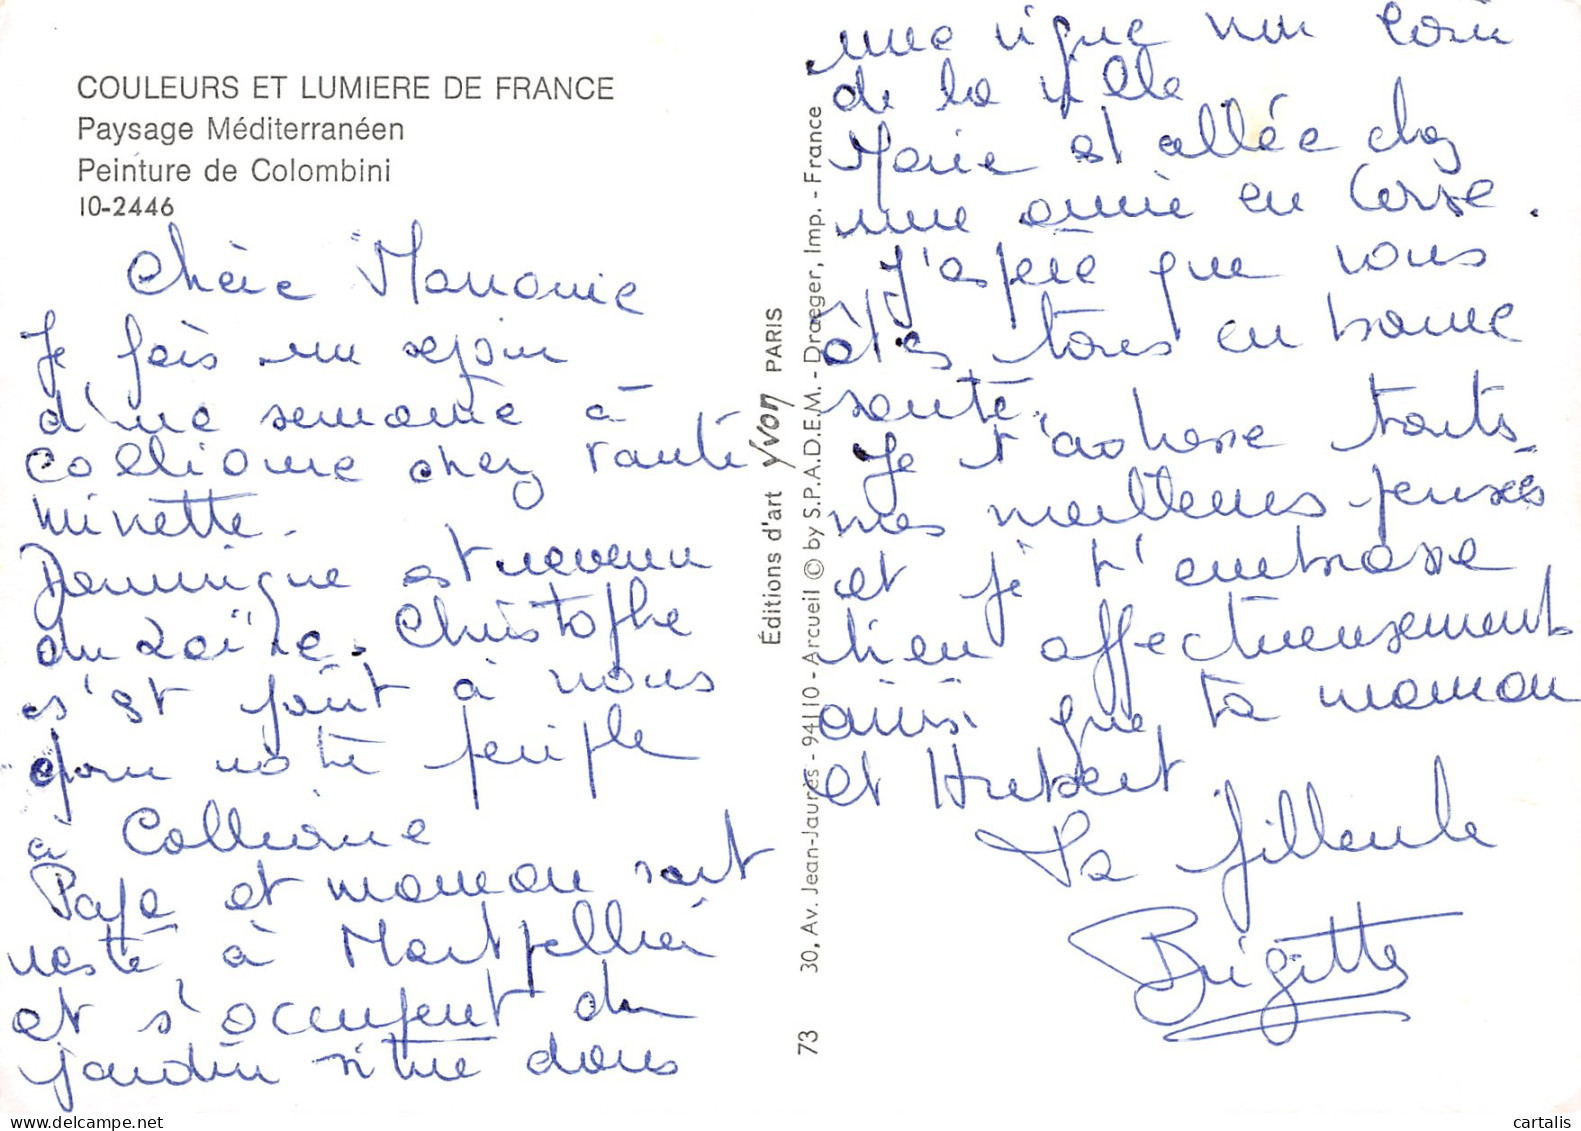 COULEURS ET LUMIERE DE FRANCE
Paysage Méditerranéen
Peinture de Colombini
10-2446
Chère Marraine
Je fais un sejour
d'une semaine à
Collioure chez tante
Minette.
Dominique est revenu
du Zaïre. Christophe
s'est joint à nous
pour notre périple
à Collioure
Papa et maman sont
resté à Montpellier
et s'occupent du
jardin situé dans
Éditions d'art Yvon PARIS
30, Av. Jean-Jaurès - 94110 - Arcueil © by S.P.A.D.E.M. - Draeger, Imp. - France
73
une vigne non loin
de la ville.
Marie est allée chez
une amie en Corse.
J'espère que vous
êtes tous en bonne
santé.
Je t'adresse toutes
mes meilleures pensées
et je t'embrasse
bien affectueusement
ainsi que ta maman
et Hubert.
Ta filleule
Brigitte
cartalis